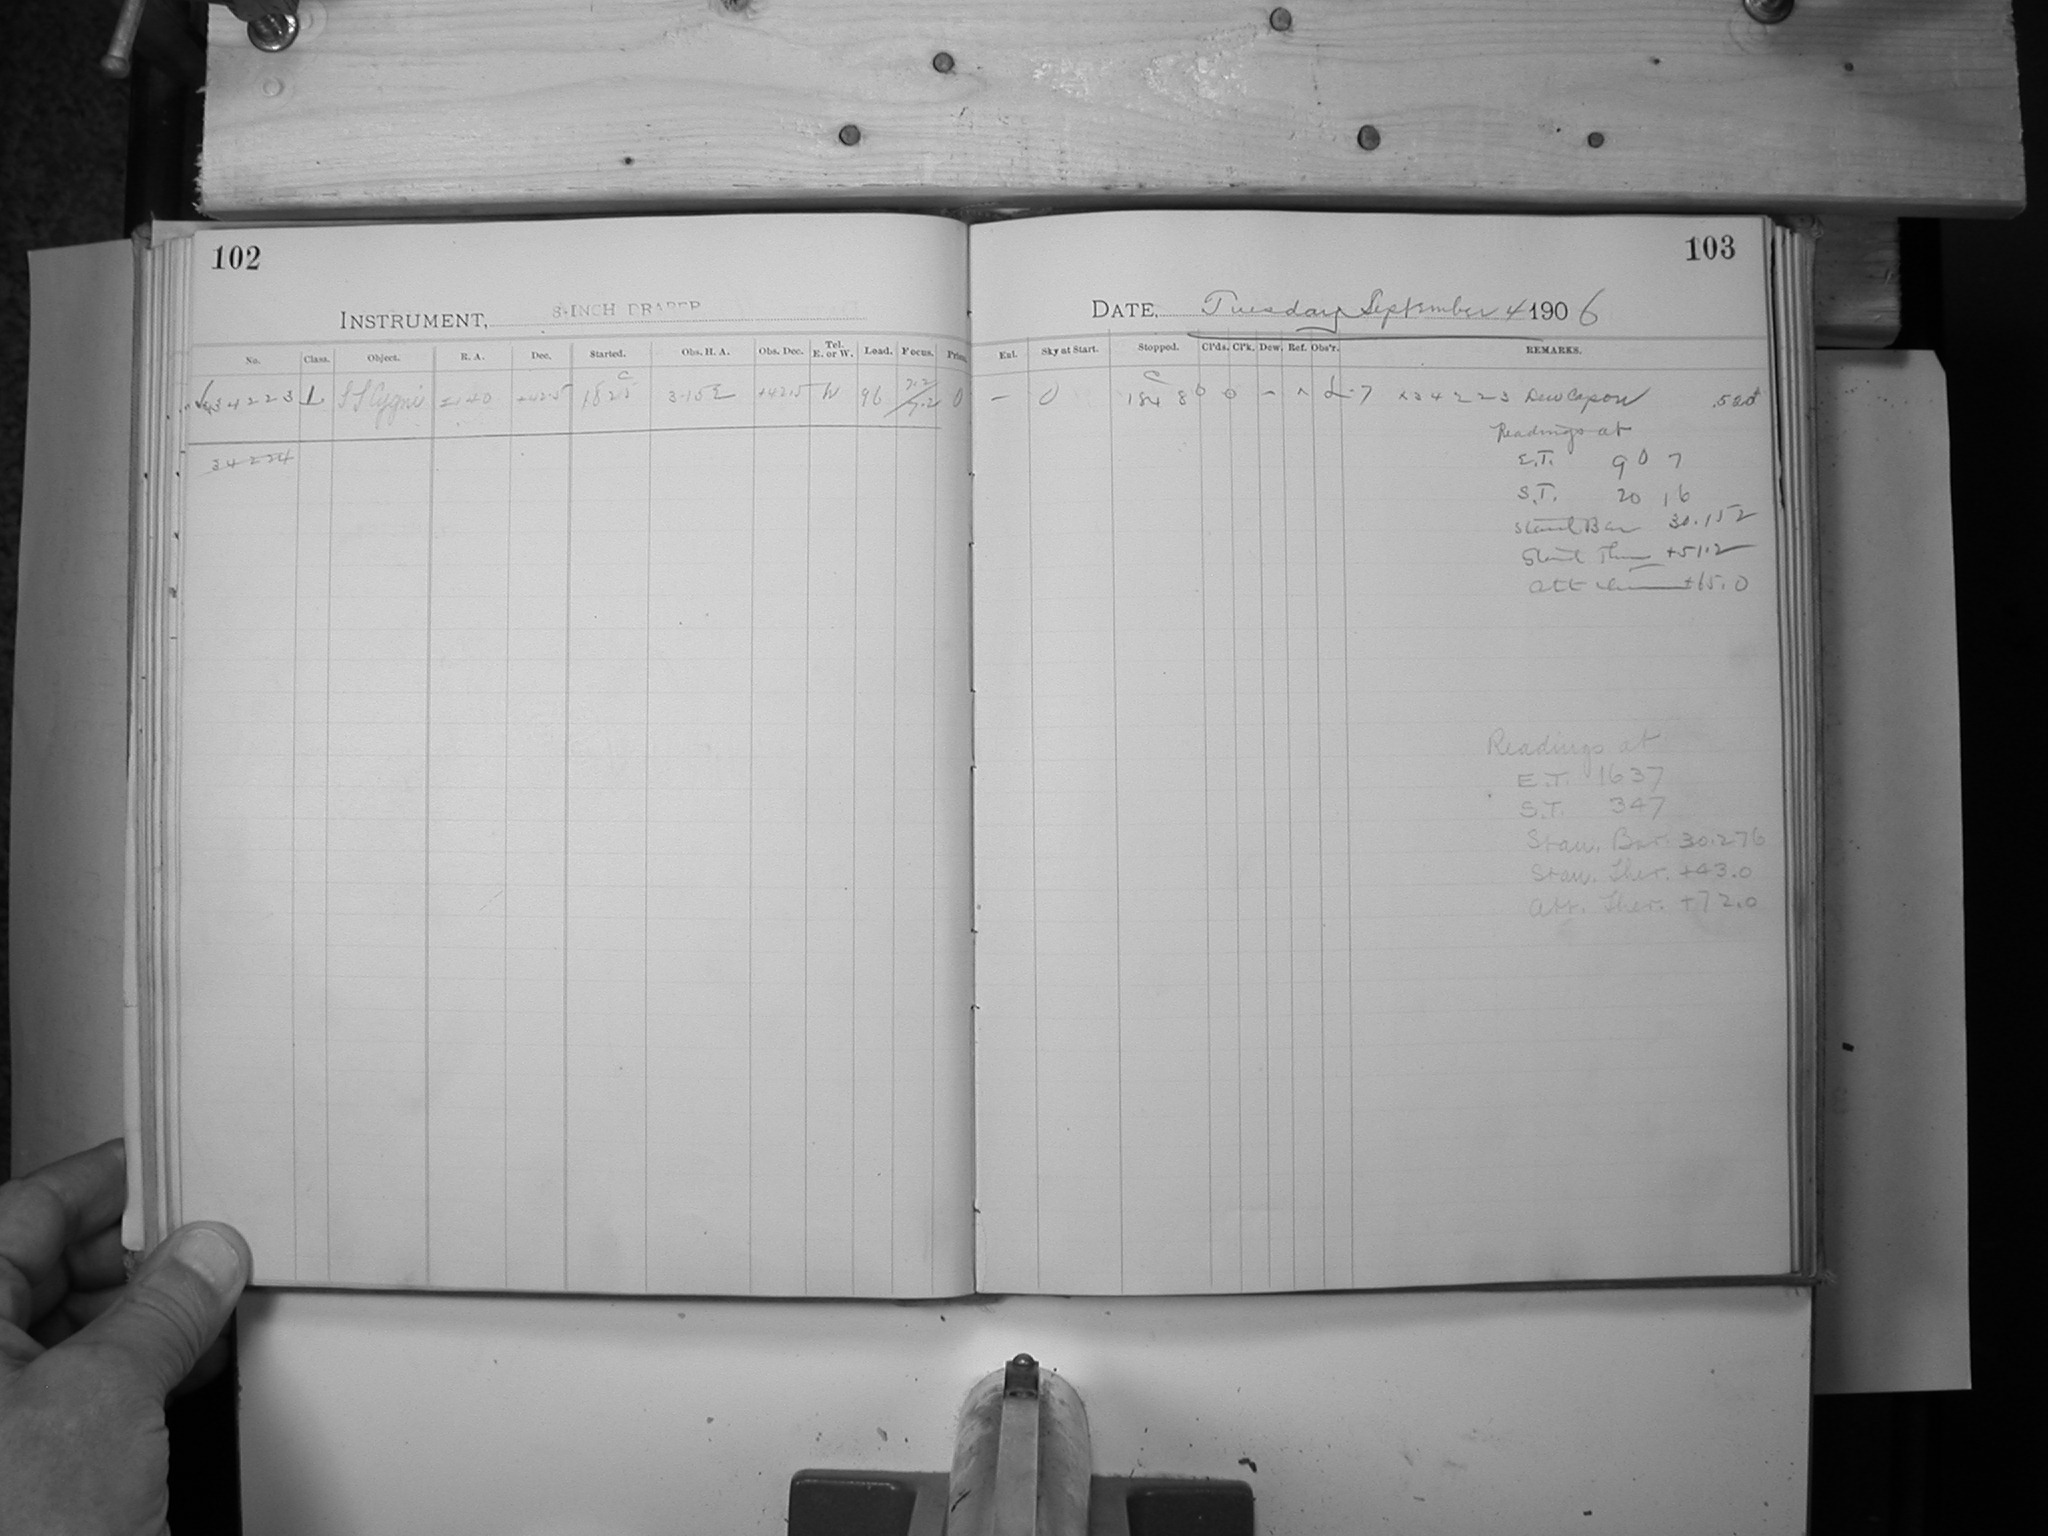 102
INSTRUMENT, 8-INCH DRAPER
No. Class. Object. R. A. Dec. Started. Obs. H. A. Obs. Dec. Tel. E. or W. Load. Focus. Prism.
34223 L SS Cygni 2140 +42.5 1825 3-15 E +42.5 W 96 7.2 0
34224
103
DATE, Tuesday September 4 1906
Enl. Sky at Start. Stopped. Cl'ds. Cl'k. Dew. Ref. Obs'r. REMARKS.
– 0 1848 0 0 – 34223 Dew Cap on
Readings at
E.T. 9 0 7
S.T. 20 16
Stand Bar 30.152
Stand Ther +51.2
Att Ther +65.0
Readings at
E.T. 1637
S.T. 347
Stan. Bar. 30.276
Stan. Ther. +43.0
Att. Ther. +72.0